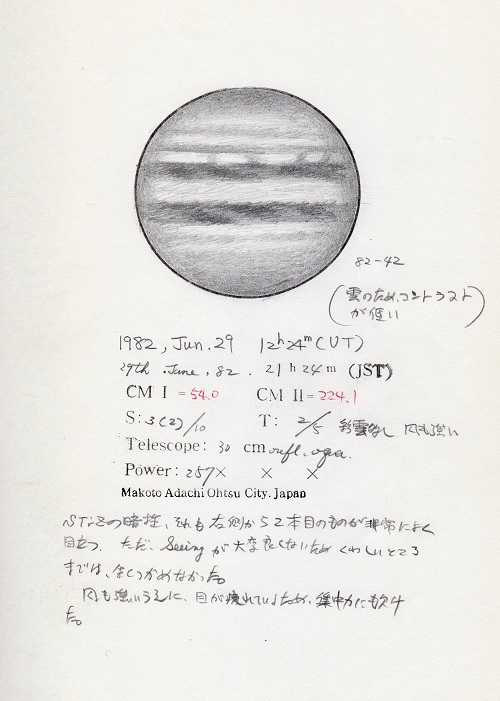 82-42
(雲のため、コントラスト
が低い)
1982, Jun. 29 12h24m (UT)
29th. June. 82. 21h24m (JST)
CM I = 54.0 CM II = 224.1
S: 3(2)/10 T: 2/5 月も強い
Telescope: 30 cm refl.
Power: 257× × ×
Makoto Adachi Ohtsu City. Japan
STrZの暗柱、それも右側から2本目のものが非常によく
目立つ。ただ、Seeingが大変良くないため くわしいところ
までは、全くつかめなかった。
月も強いうえに、目が疲れているため、集中力にも欠け
た。